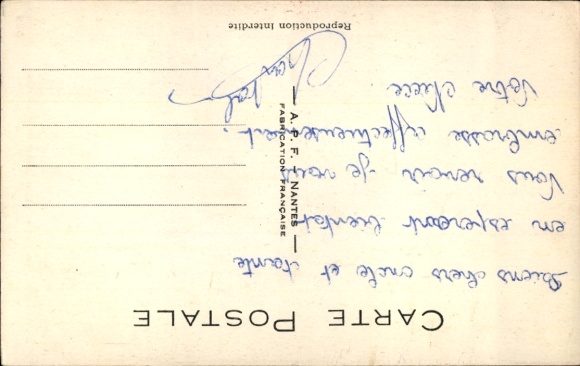 CARTE POSTALE
chers oncle et tante
en esperant bientôt
vous revoir je vous
embrasse affectueusement.
Votre nièce
A. P. F. - NANTES
FABRICATION FRANÇAISE
Reproduction Interdite